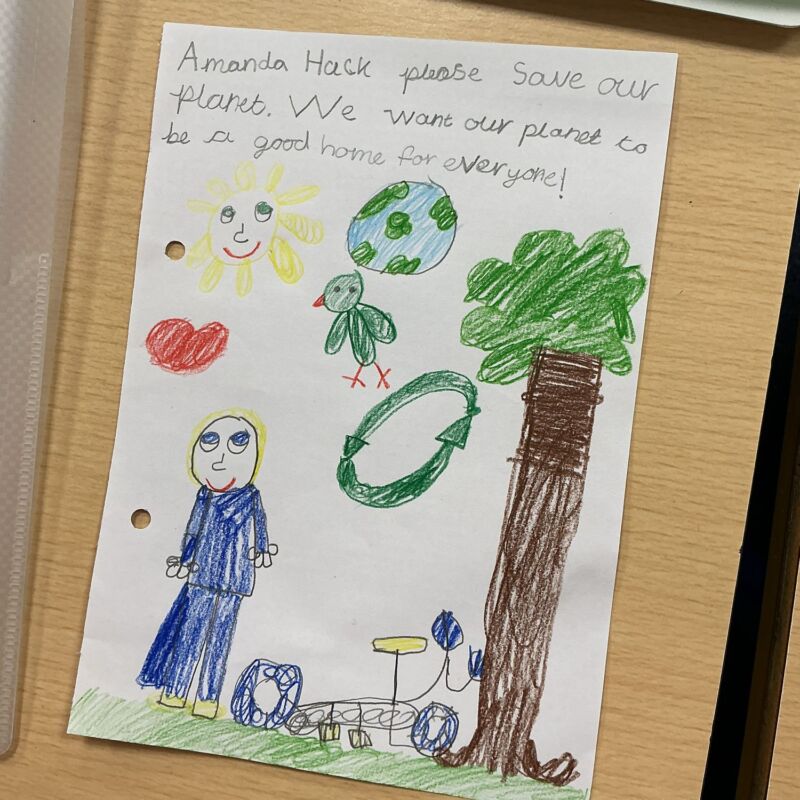 Amanda Hack please Save our
planet. We want our planet to
be a good home for everyone!